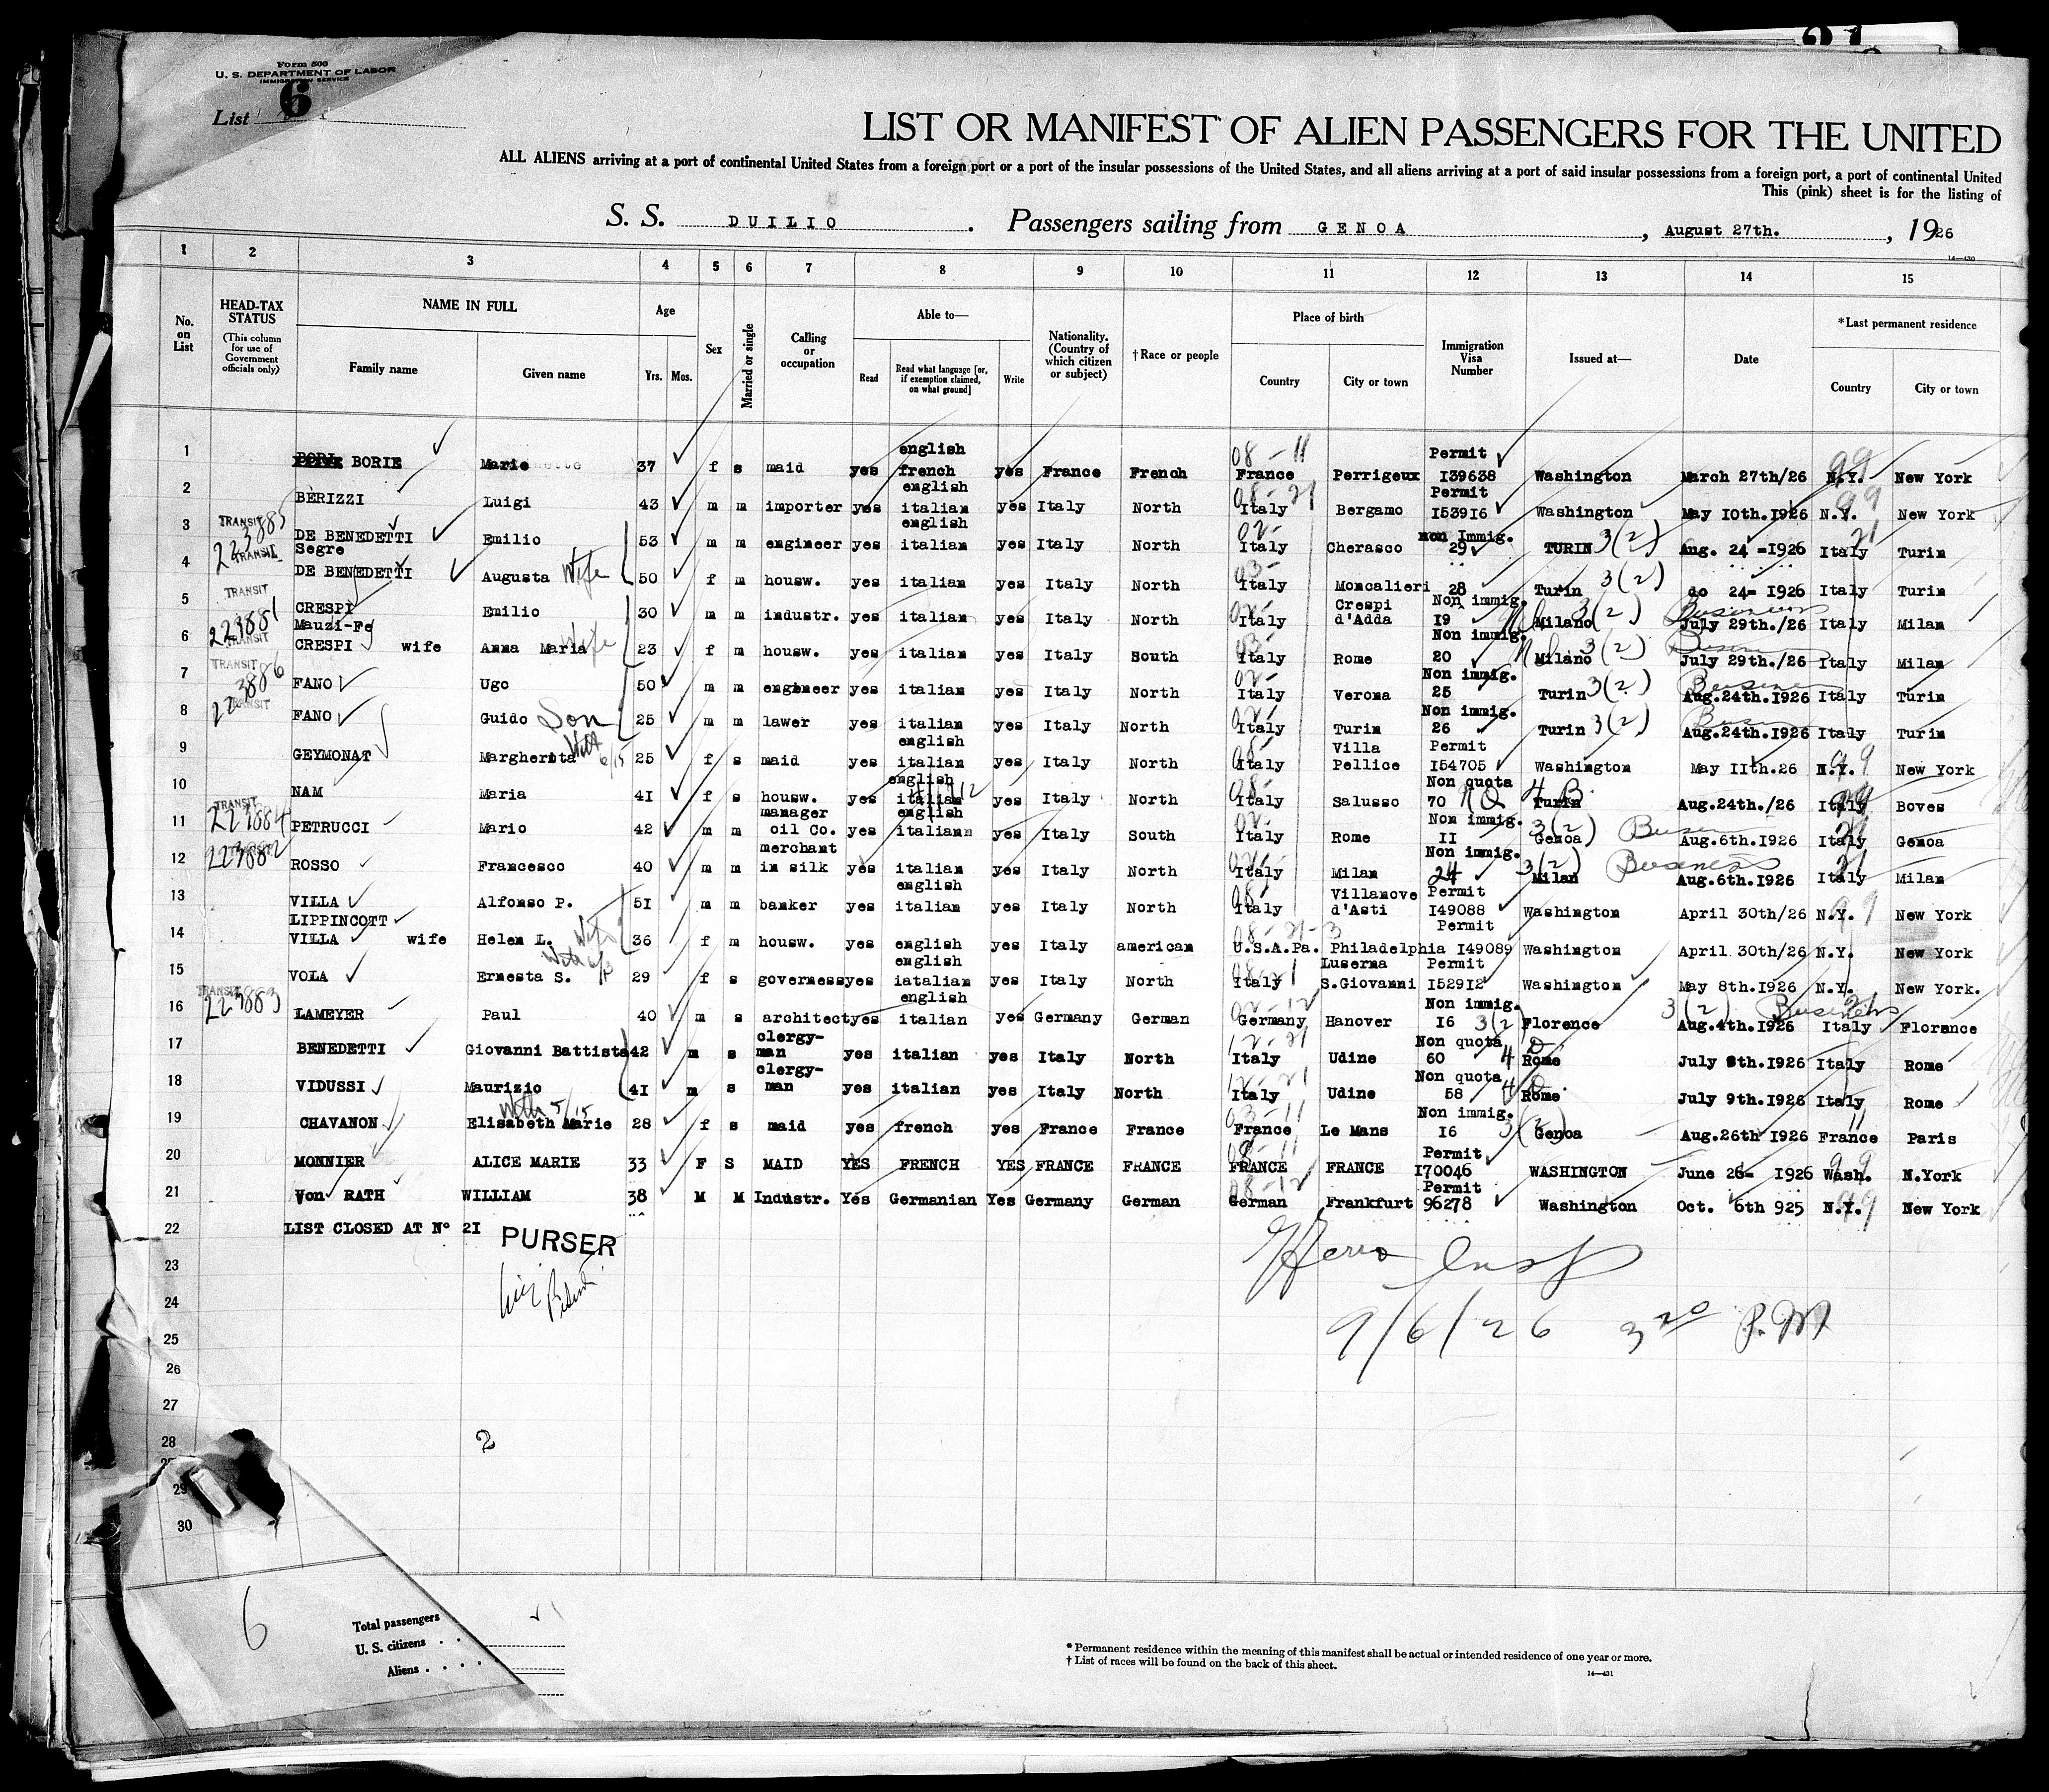 Form 500
U. S. DEPARTMENT OF LABOR
IMMIGRATION SERVICE
List 6
LIST OR MANIFEST OF ALIEN PASSENGERS FOR THE UNITED
ALL ALIENS arriving at a port of continental United States from a foreign port or a port of the insular possessions of the United States, and all aliens arriving at a port of said insular possessions from a foreign port, a port of continental United
This (pink) sheet is for the listing of
S. S. DUILIO . Passengers sailing from GENOA , August 27th. , 1926
14—430
1 2 3 4 5 6 7 8 9 10 11 12 13 14 15
No. on List
HEAD-TAX STATUS
(This column for use of Government officials only)
NAME IN FULL
Family name Given name
Age
Yrs. Mos.
Sex
Married or single
Calling or occupation
Able to—
Read Read what language [or, if exemption claimed, on what ground] Write
Nationality. (Country of which citizen or subject)
†Race or people
Place of birth
Country City or town
Immigration Visa Number
Issued at—
Date
*Last permanent residence
Country City or town
1 BORIE Marie 37 f s maid yes english french yes France French 08-11 France Perrigeux Permit I39638 Washington March 27th/26 99 N.Y. New York
2 BERIZZI Luigi 43 m m importer yes english italian yes Italy North 08-21 Italy Bergamo Permit I53916 Washington May 10th.1926 99 N.Y. New York
3 TRANSIT 223885 DE BENEDETTI Emilio 53 m m engineer yes english italian yes Italy North 02- Italy Cherasco non Immig. 29 TURIN 3(2) Aug. 24 =1926 21 Italy Turin
4 TRANSIT Segre DE BENEDETTI Augusta Wife 50 f m housw. yes italian yes Italy North 03- Italy Moncalieri 28 Turin 3(2) do 24= 1926 Italy Turin
5 TRANSIT 223881 CRESPI Emilio 30 m m industr. yes italian yes Italy North 02- Italy Crespi d'Adda Non immig. I9 Milano 3(2) Business July 29th./26 Italy Milan
6 TRANSIT Mauzi-Fe CRESPI wife Anna Maria Wife 23 f m housw. yes italian yes Italy South 03- Italy Rome Non immig. 20 Milano 3(2) July 29th./26 Italy Milan
7 TRANSIT 223886 FANO Ugo 50 m m engineer yes italian yes Italy North 02- Italy Verona Non immig. 25 Turin 3(2) Business Aug.24th.1926 Italy Turin
8 TRANSIT FANO Guido Son 25 m m lawer yes italian yes Italy North 02- Italy Turin Non immig. 26 Turin 3(2) Aug.24th.1926 Italy Turin
9 GEYMONAT Margherita With 6/15 25 f s maid yes english italian yes Italy North 08- Italy Villa Pellice Permit I54705 Washington May IIth.26 99 N.Y. New York
10 NAM Maria 4I f s housw. yes english italian yes Italy North 08- Italy Salusso Non quota 70 NQ 4 B. Turin Aug.24th./26 Italy Boves
11 TRANSIT 223884 PETRUCCI Mario 42 m m manager oil Co. yes english italian yes Italy South 02- Italy Rome Non immig. II 3(2) Genoa Aug.6th.1926 21 Italy Genoa
12 223882 ROSSO Francesco 40 m m merchant in silk yes italian yes Italy North Italy Milan Non immig. 24 3(2) Milan Business Aug.6th.1926 21 Italy Milan
13 VILLA Alfonso P. 5I m m banker yes english italian yes Italy North 08 Italy Villanove d'Asti Permit I49088 Washington April 30th/26 99 N.Y. New York
14 LIPPINCOTT VILLA wife Helen L. Wife 36 f m housw. yes english yes Italy american 08-21-3 U.S.A.Pa. Philadelphia Permit I49089 Washington April 30th/26 N.Y. New York
15 VOLA Ernesta S. With 6/13 29 f s governess yes english iatalian yes Italy North 08-21 Italy Luserna S.Giovanni Permit I52912 Washington May 8th.1926 N.Y. New York.
16 TRANSIT 223883 LAMEYER Paul 40 m s architect yes english italian yes Germany German 02-12 Germany Hanover Non immig. I6 3(2 Florence 3(2) Business Aug.4th.1926 21 Italy Florance
17 BENEDETTI Giovanni Battista 42 m s clergy-man yes italian yes Italy North 12-21 Italy Udine Non quota 60 4 D Rome July 8th.1926 Italy Rome
18 VIDUSSI Maurizio 4I m s clergy-man yes italian yes Italy North 12-21 Italy Udine Non quota 58 4 D Rome July 9th.1926 Italy Rome
19 CHAVANON Elisabeth Marie With 5/15 28 f s maid yes french yes France France 03-11 France Le Mans Non immig. I6 3(2) Genoa Aug.26th 1926 11 France Paris
20 MONNIER ALICE MARIE 33 F S MAID YES FRENCH YES FRANCE FRANCE 08-11 FRANCE FRANCE Permit I70046 WASHINGTON June 26= I926 99 Wash. N.York
21 Von RATH WILLIAM 38 M M Industr. Yes Germanian Yes Germany German 08-12 German Frankfurt Permit 96278 Washington Oct. 6th 925 99 N.Y. New York
22 LIST CLOSED AT Nº 2I PURSER
23
24
25 9/6/26 3 20 P.M
26
27
28 2
29
30
6
Total passengers
U. S. citizens . .
Aliens . . . . .
* Permanent residence within the meaning of this manifest shall be actual or intended residence of one year or more.
† List of races will be found on the back of this sheet.
14—431